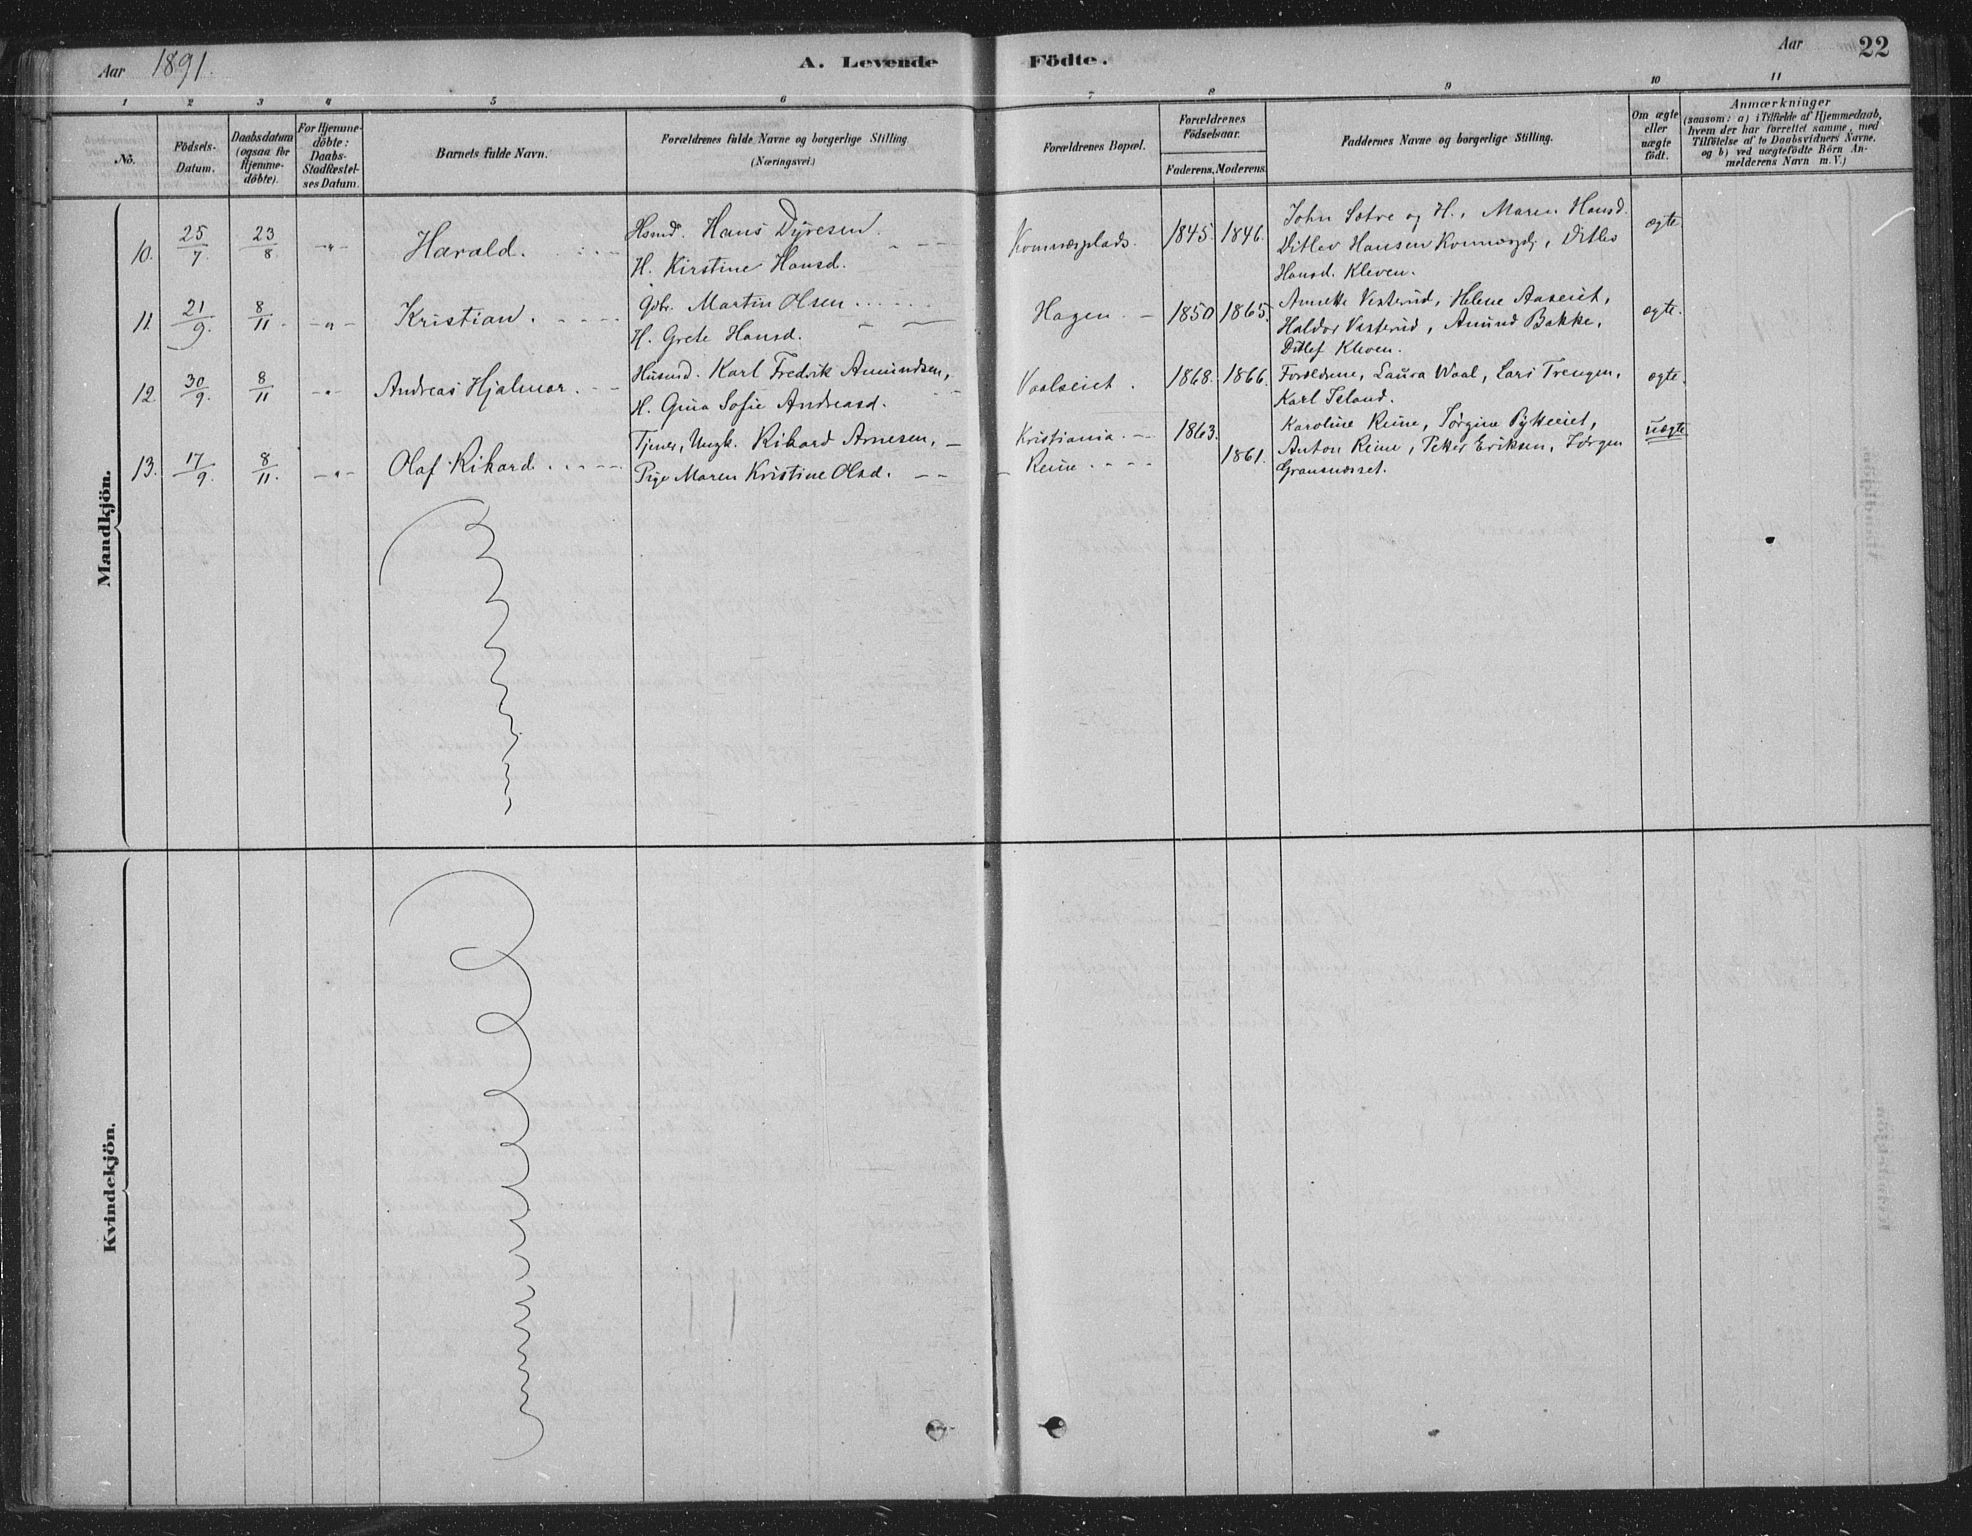 Aar 1891.
A. Levende
Födte.
Aar
22
1 2 3 4 5 6 7 8 9 10 11
No.
Födsels-
Datum.
Daabsdatum
(ogsaa for
Hjemme-
döbte).
For Hjemme-
döbte:
Daabs-
Stadfæstel-
ses Datum.
Barnets fulde Navn.
Forældrenes fulde Navne og borgerlige Stilling
(Næringsvei.)
Forældrenes Bopæl.
Forældrenes
Födselsaar.
Faderens. Moderens.
Faddernes Navne og borgerlige Stilling.
Om ægte
eller
uægte
födt.
Anmærkninger
(saasom: a) i Tilfælde af Hjemmedaab,
hvem der har forrettet samme, med
Tilföielse af to Daabsvidners Navne,
og b) ved uægtefödte Börn An-
melderens Navn m. V.)
Mandkjön.
10. 25/7. 23/8. -"- Harald.
Hsmd. Hans Dyresen.
H. Kirstine Hansd.
1845. 1846.
John Sætre og H., Maren Hansd.
Ditlev Hansen, Ditlev
Hansd. Kleven.
ægte
11. 21/9. 8/11. -"- Kristian.
Gdbr. Martin Olsen
H. Grete Hansd.
Hagen. 1850 1865.
Annette Vesterud, Helene Aaseiet,
Haldor Vesterud, Amund Bakke,
Ditlef Kleven.
ægte.
12 30/9. 8/11 -"- Andreas Hjalmar.
Husmd. Karl Fredrik Amundsen,
H. Gina Sofie Andreasd.
Vaalseiet. 1868. 1866.
Forældrene, Laura Waal, Lars Trengen,
Karl Island.
ægte.
13. 17/9. 8/11. -"- Olaf Rikard
Tjener, Ungk. Rikard Arnesen,
Pige Maren Kristine Olsd.
Kristiania. 1863.
Reine 1861.
Karoline Reine, Jørgine Pytteeiet,
Anton Reine, Petter Eriksen, Jørgen
Gransnæsset.
uægte
Kvindekjön.